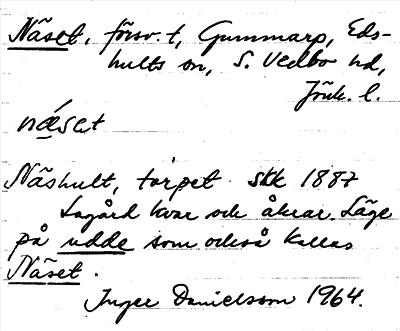 Näset, försv. t, Gummarp, Eds-
hults sn, S. Vedbo hd,
Jönk. l.
næ´set
Näshult, torpet SKK 1887
Lagård kvar och åkrar. Läge
på udde som också kallas
Näset.
Inger Danielsson 1964.